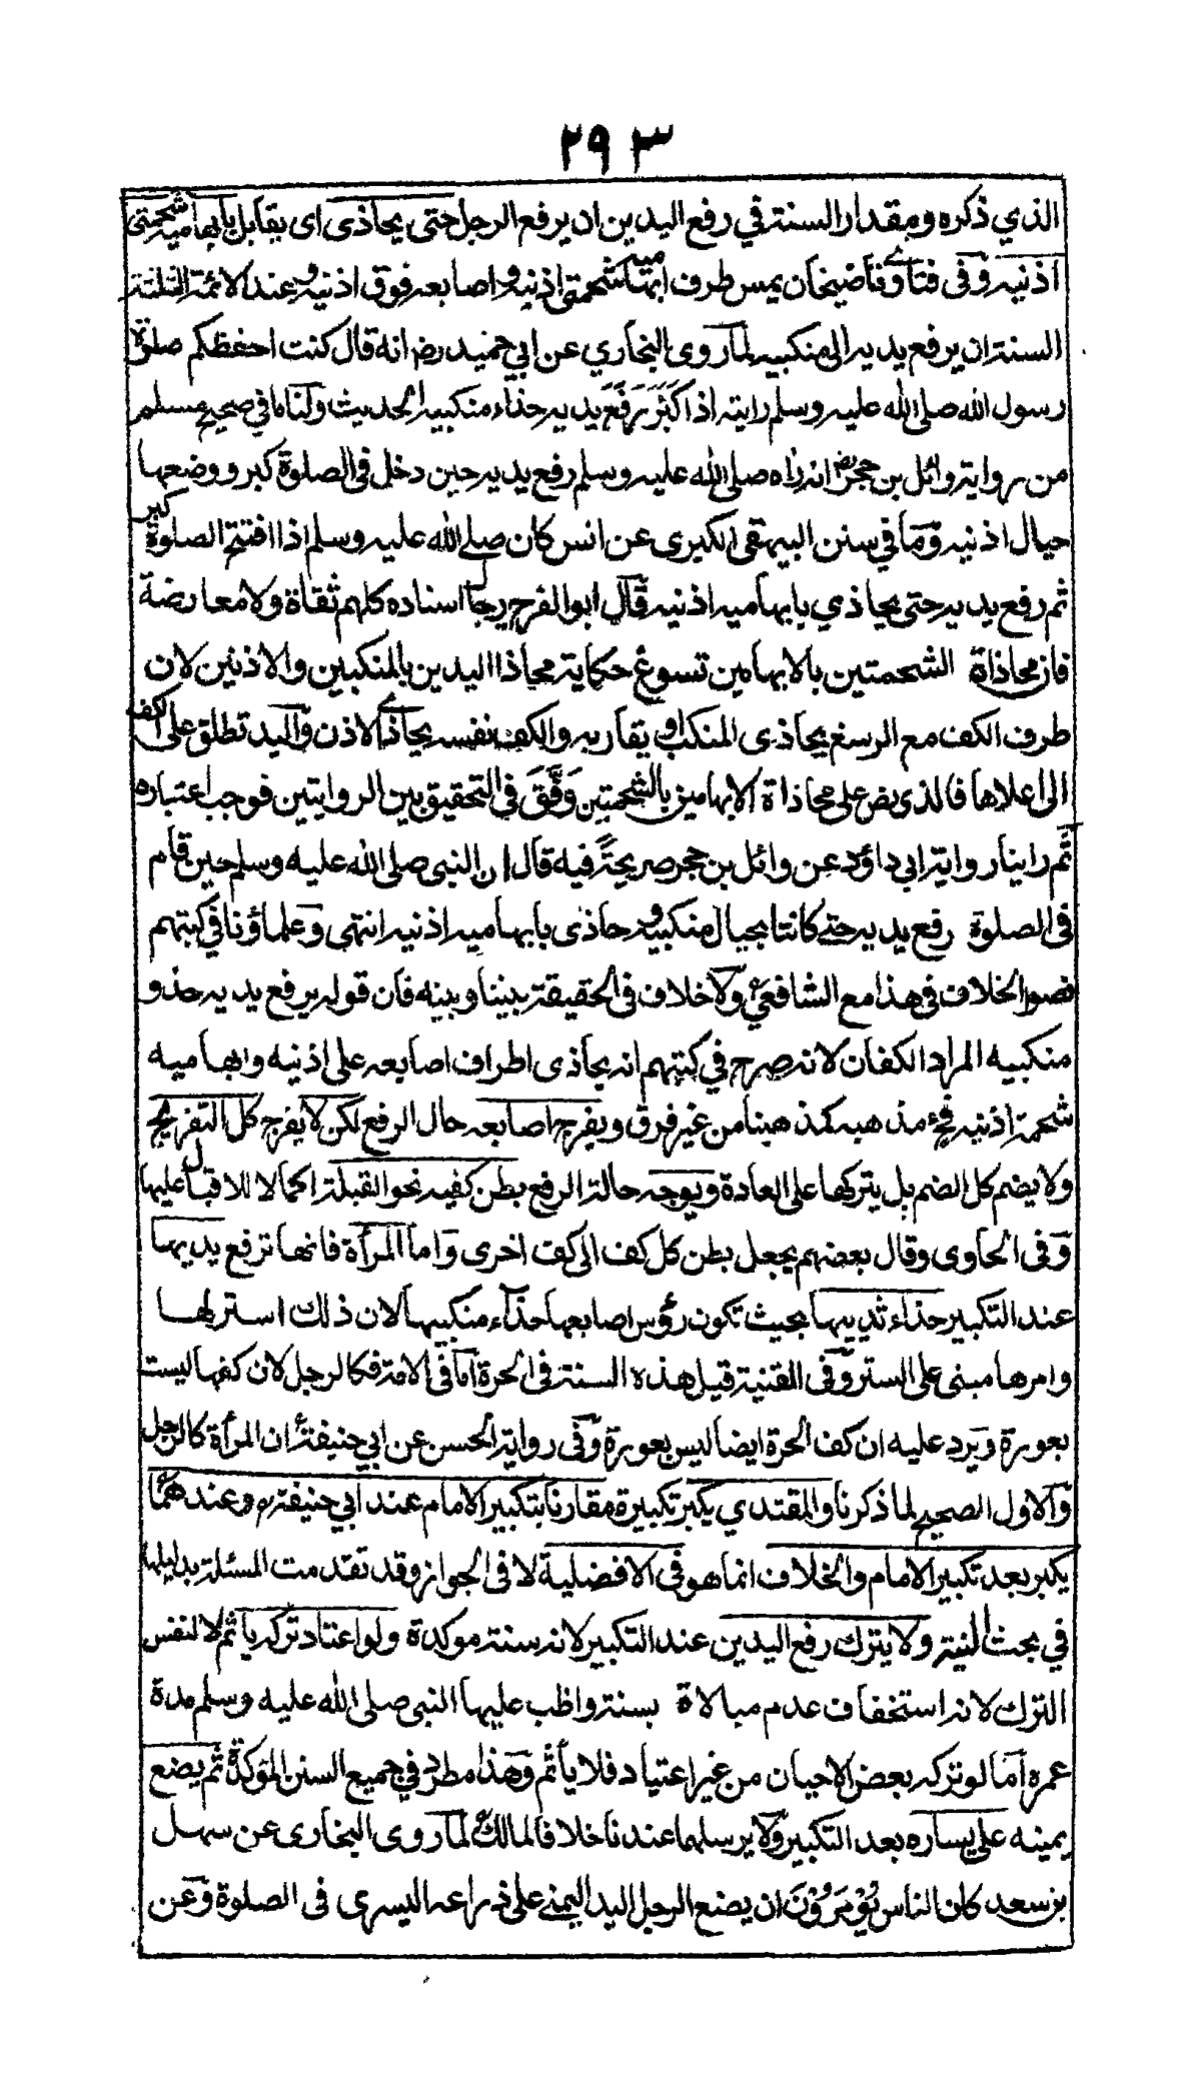 ٢٩٣
الذي ذكره ومقدار السنة في رفع اليدين ان يرفع الرجل حتى يحاذى اى يقابل بابهاميه شحمتى
اذنيه وفى فتاوى قاضيخان يمس طرف ابهاميه شحمتى اذنيه واصابعه فوق اذنيه وعند الائمة الثلثة
السنة ان يرفع يديه الى منكبيه لما روى البخاري عن ابي حميد رضـ انه قال كنت احفظكم صلوة
رسول الله صلى الله عليه وسلم رايته اذا كبّر رفع يديه حذاء منكبيه الحديث ولنا ما في صحيح مسلم
من رواية وائل بن حجر رضـ انه راه صلى الله عليه وسلم رفع يديه حين دخل فى الصلوة كبر ووضعها
حيال اذنيه وما في سنن البيهقى الكبرى عن انس كان صلى الله عليه وسلم اذا افتتح الصلوة كبر
ثم رفع يديه حتى يحاذي بابهاميه اذنيه قال ابو الفرج رجال اسناده كلهم ثقاة ولا معارضة
فان محاذاة الشحمتين بالابهامين تسوغ حكاية محاذا اليدين بالمنكبين والاذنين لان
طرف الكف مع الرسغ يحاذى المنكب او يقاربه والكف نفسه يحاذى الاذن واليد تطلق على الكف
الى اعلاها فالذى نص على محاذاة الابهامين بالشحمتين وَفَّقَ فى التحقيق بين الروايتين فوجب اعتباره
ثم راينا رواية ابي داؤد عن وائل بن حجر صريحةً فيه قال ان النبى صلى الله عليه وسلم حين قام
فى الصلوة رفع يديه حتى كانتا بحيال منكبيه وحاذى بابهاميه اذنيه انتهى وعلماؤنا في كتبهم
نصوا الخلاف فى هذا مع الشافعيؒ ولا خلاف فى الحقيقة بيننا وبينه فان قوله يرفع يديه حذو
منكبيه المراد الكفان لانه صرح في كتبهم انه يحاذى اطراف اصابعه على اذنيه وابهاميه
شحمة اذنيه فحؒ مذهبه كمذهبنا من غير فرق ويفرج اصابعه حال الرفع لكن لا يفرج كل التفريج
ولا يضم كل الضم بل يتركها على العادة ويوجه حالة الرفع بطن كفيه نحو القبلة اكمالا للاقبال عليها
وفى الحاوى وقال بعضهم يجعل بطن كل كف الى كف اخرى واما المرأة فانها ترفع يديها
عند التكبير حذاء ثدييها بحيث تكون رؤس اصابعها حذاء منكبيها لان ذلك استر لها
وامرها مبنى على الستر وفى القنية قيل هذه السنة فى الحرة اما فى الامة فكالرجل لان كفها ليست
بعورة ويرد عليه ان كف الحرة ايضا ليس بعورة وفى رواية الحسن عن ابي حنيفةؒ ان المرأة كالرجل
والاول الصحيح لما ذكرنا والمقتدي يكبر تكبيرة مقارنا بتكبير الامام عند ابي حنيفةؒ وعندهما
يكبر بعد تكبير الامام والخلاف انما هو فى الافضلية لا فى الجواز وقد تقدمت المسئلة بدليلها
في بحث النية ولا يترك رفع اليدين عند التكبير لانه سنة موكدة ولو اعتاد تركه يأثم لا لنفس
الترك لانه استخفاف عدم مبالاة بسنة واظب عليها النبى صلى الله عليه وسلم مدة
عمره اما لو تركه بعض الاحيان من غير اعتياد فلا يأثم وهذا مطرد في جميع السنن المؤكدة ثم يضع
يمينه على يساره بعد التكبير ولا يرسلهما عندنا خلافا لمالكؒ لما روى البخارى عن سهل
بن سعد كان الناس يُؤمَرُوْنَ ان يضع الرجل اليد اليمنى على ذراعه اليسرى فى الصلوة وعن